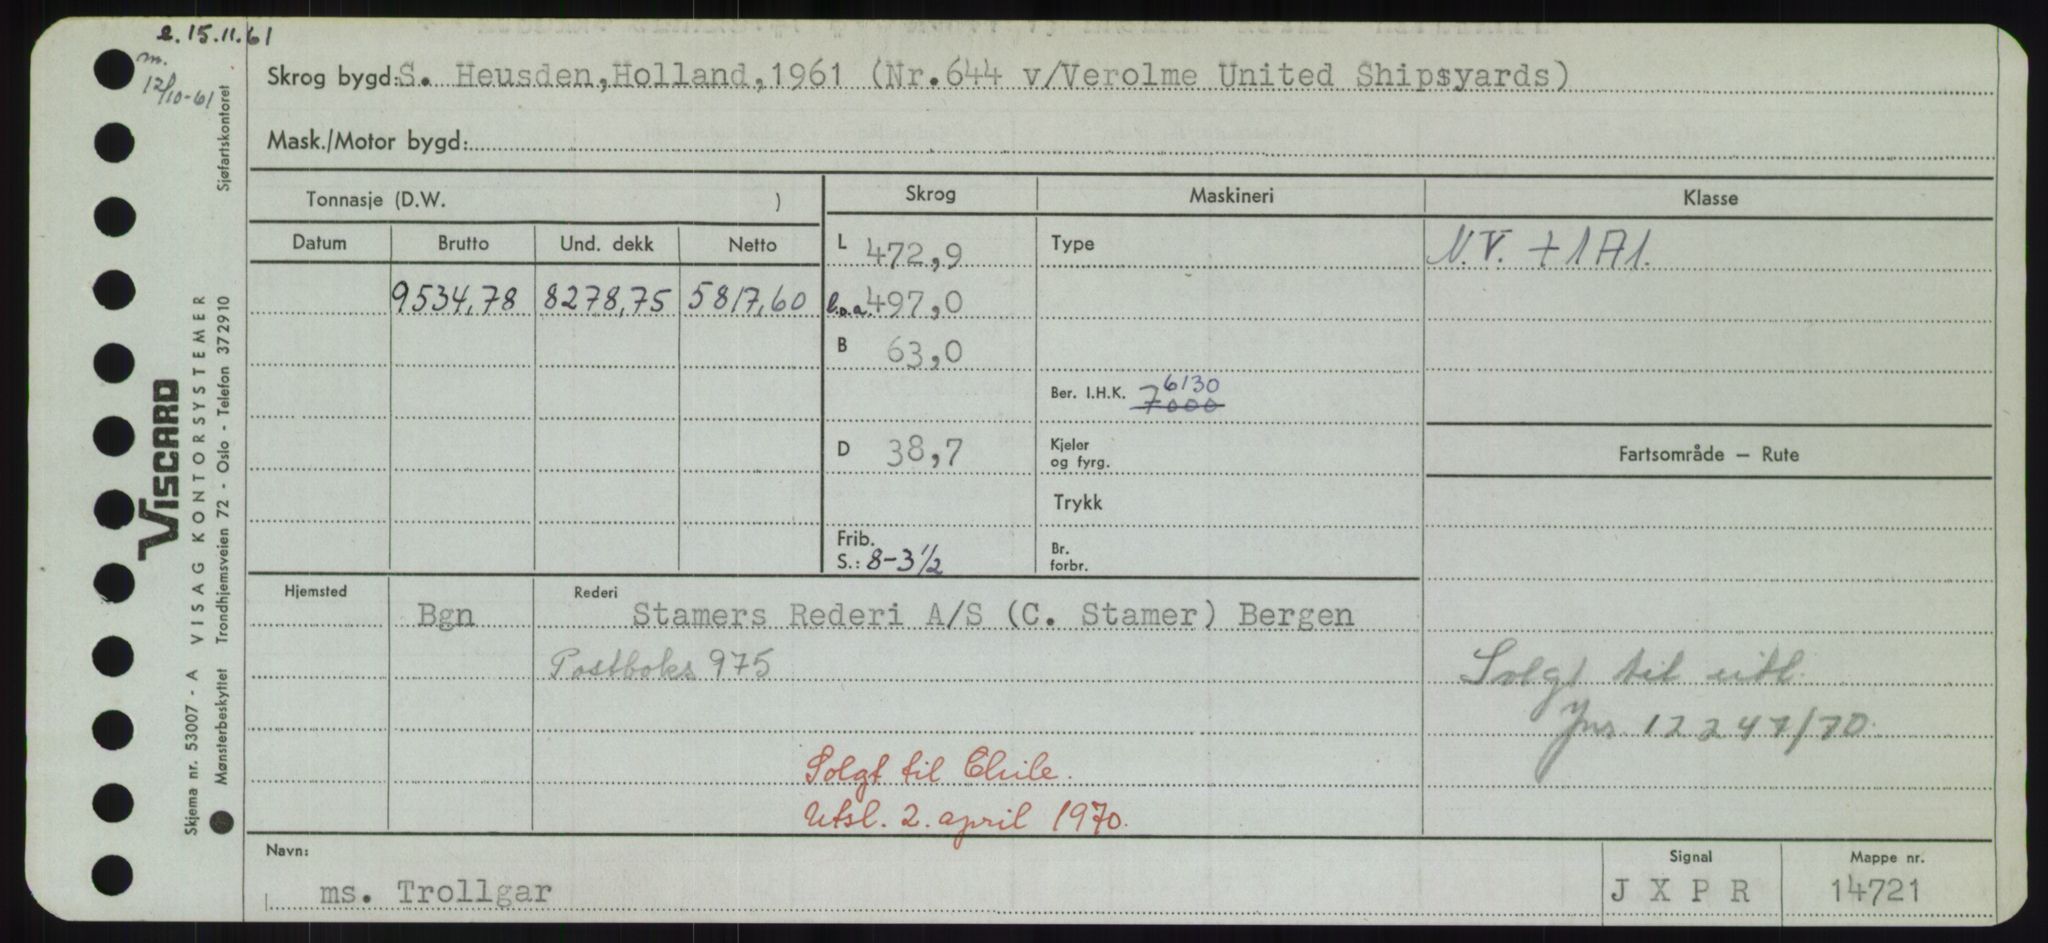 e. 15.11.61
m.
12/10-61
Skrog bygd: S. Heusden, Holland, 1961 (Nr. 644 v/Verolme United Shipsyards)
Mask./Motor bygd:
Tonnasje (D.W. )
Skrog
Maskineri
Klasse
Datum
Brutto
Und. dekk
Netto
L 472,9
Type
N.V. +1A1.
9534,78
8278,75
5817,60
l.o.a. 497,0
B 63,0
Ber. I.H.K. 7000 6130
D 38,7
Kjeler
og fyrg.
Fartsområde – Rute
Trykk
Frib.
S.: 8-3 1/2
Br.
forbr.
Hjemsted
Bgn
Rederi
Stamers Rederi A/S (C. Stamer) Bergen
Postboks 975
Solgt til utl.
Jnr. 12247/70
Solgt til Chile.
Utsl. 2. april 1970.
Navn:
ms. Trollgar
Signal
J X P R
Mappe nr.
14721
Sjøfartskontoret
VISCARD
VISAG KONTORSYSTEMER
Trondhjemsveien 72 - Oslo - Telefon 372910
Skjema nr. 53007 - A
Mønsterbeskyttet